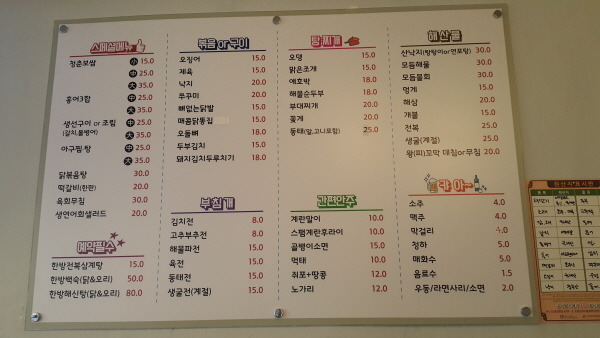 스페셜메뉴
청춘보쌈 小 15.0
中 25.0
大 35.0
홍어3합 中 25.0
大 35.0
생선구이 or 조림 中 25.0
(갈치,물병어) 大 35.0
아구찜·탕 中 25.0
大 35.0
닭볶음탕 30.0
떡갈비(한판) 20.0
육회무침 30.0
생연어회샐러드 20.0
예약필수
한방전복삼계탕 15.0
한방백숙(닭&오리) 50.0
한방해신탕(닭&오리) 80.0
볶음 or 구이
오징어 15.0
제육 15.0
낙지 20.0
쭈꾸미 20.0
뼈없는닭발 15.0
매콤닭똥집 15.0
오돌뼈 18.0
두부김치 15.0
돼지김치두루치기 18.0
부침개
김치전 8.0
고추부추전 8.0
해물파전 15.0
육전 15.0
동태전 15.0
생굴전(계절) 15.0
탕찌개
오뎅 15.0
맑은조개 15.0
애호박 18.0
해물순두부 18.0
부대찌개 20.0
꽃게 20.0
동태(알,고니포함) 25.0
간편안주
계란말이 10.0
스팸계란후라이 10.0
골뱅이소면 15.0
먹태 15.0
쥐포+땅콩 12.0
노가리 12.0
해산물
산낙지(탕탕이or연포탕) 30.0
모듬해물 30.0
모듬물회 30.0
멍게 15.0
해삼 20.0
개불 15.0
전복 25.0
생굴(계절) 25.0
왕(피)꼬막 데침or무침 20.0
캬 아~
소주 4.0
맥주 4.0
막걸리 4.0
청하 5.0
매화수 5.0
음료수 1.5
우동/라면사리/소면 2.0
원산지 표시판